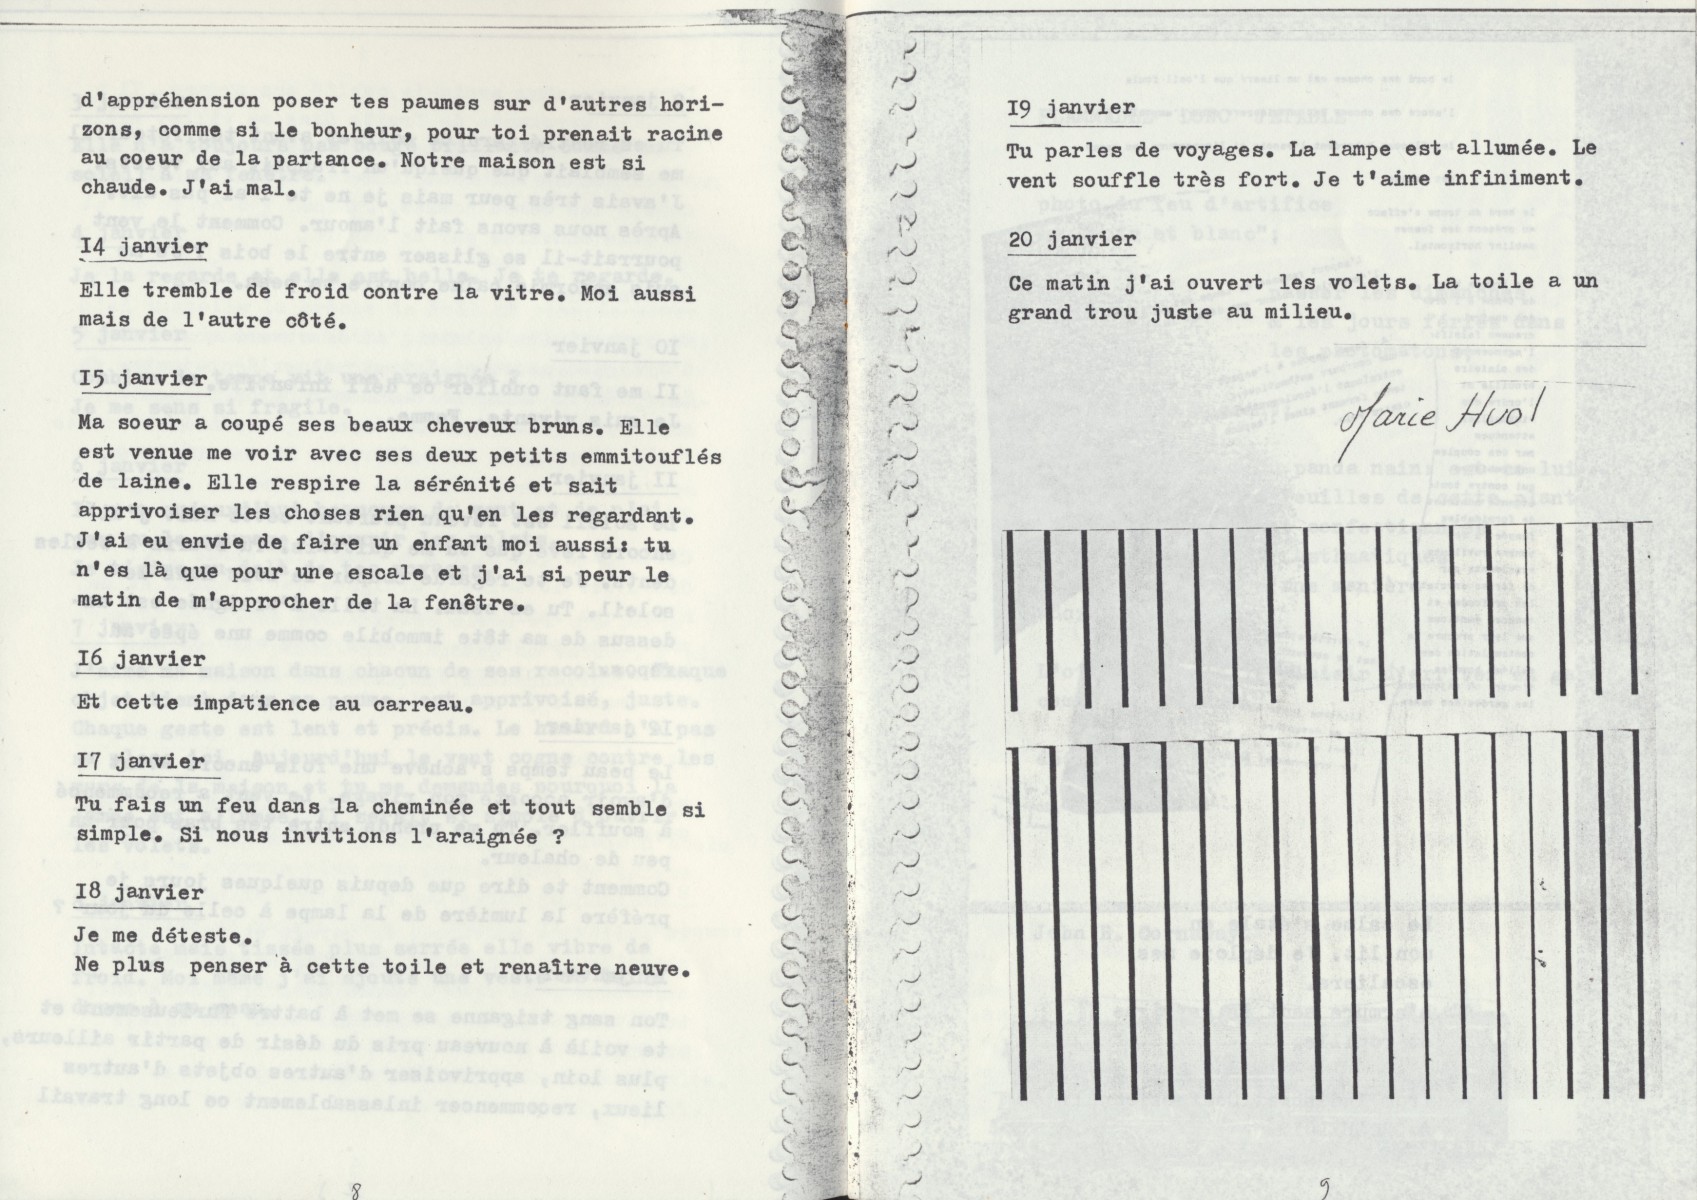 d'appréhension poser tes paumes sur d'autres hori-
zons, comme si le bonheur, pour toi prenait racine
au coeur de la partance. Notre maison est si
chaude. J'ai mal.
I4 janvier
Elle tremble de froid contre la vitre. Moi aussi
mais de l'autre côté.
I5 janvier
Ma soeur a coupé ses beaux cheveux bruns. Elle
est venue me voir avec ses deux petits emmitouflés
de laine. Elle respire la sérénité et sait
apprivoiser les choses rien qu'en les regardant.
J'ai eu envie de faire un enfant moi aussi: tu
n'es là que pour une escale et j'ai si peur le
matin de m'approcher de la fenêtre.
I6 janvier
Et cette impatience au carreau.
I7 janvier
Tu fais un feu dans la cheminée et tout semble si
simple. Si nous invitions l'araignée ?
I8 janvier
Je me déteste.
Ne plus penser à cette toile et renaître neuve.
8
I9 janvier
Tu parles de voyages. La lampe est allumée. Le
vent souffle très fort. Je t'aime infiniment.
20 janvier
Ce matin j'ai ouvert les volets. La toile a un
grand trou juste au milieu.
Marie Huol
9